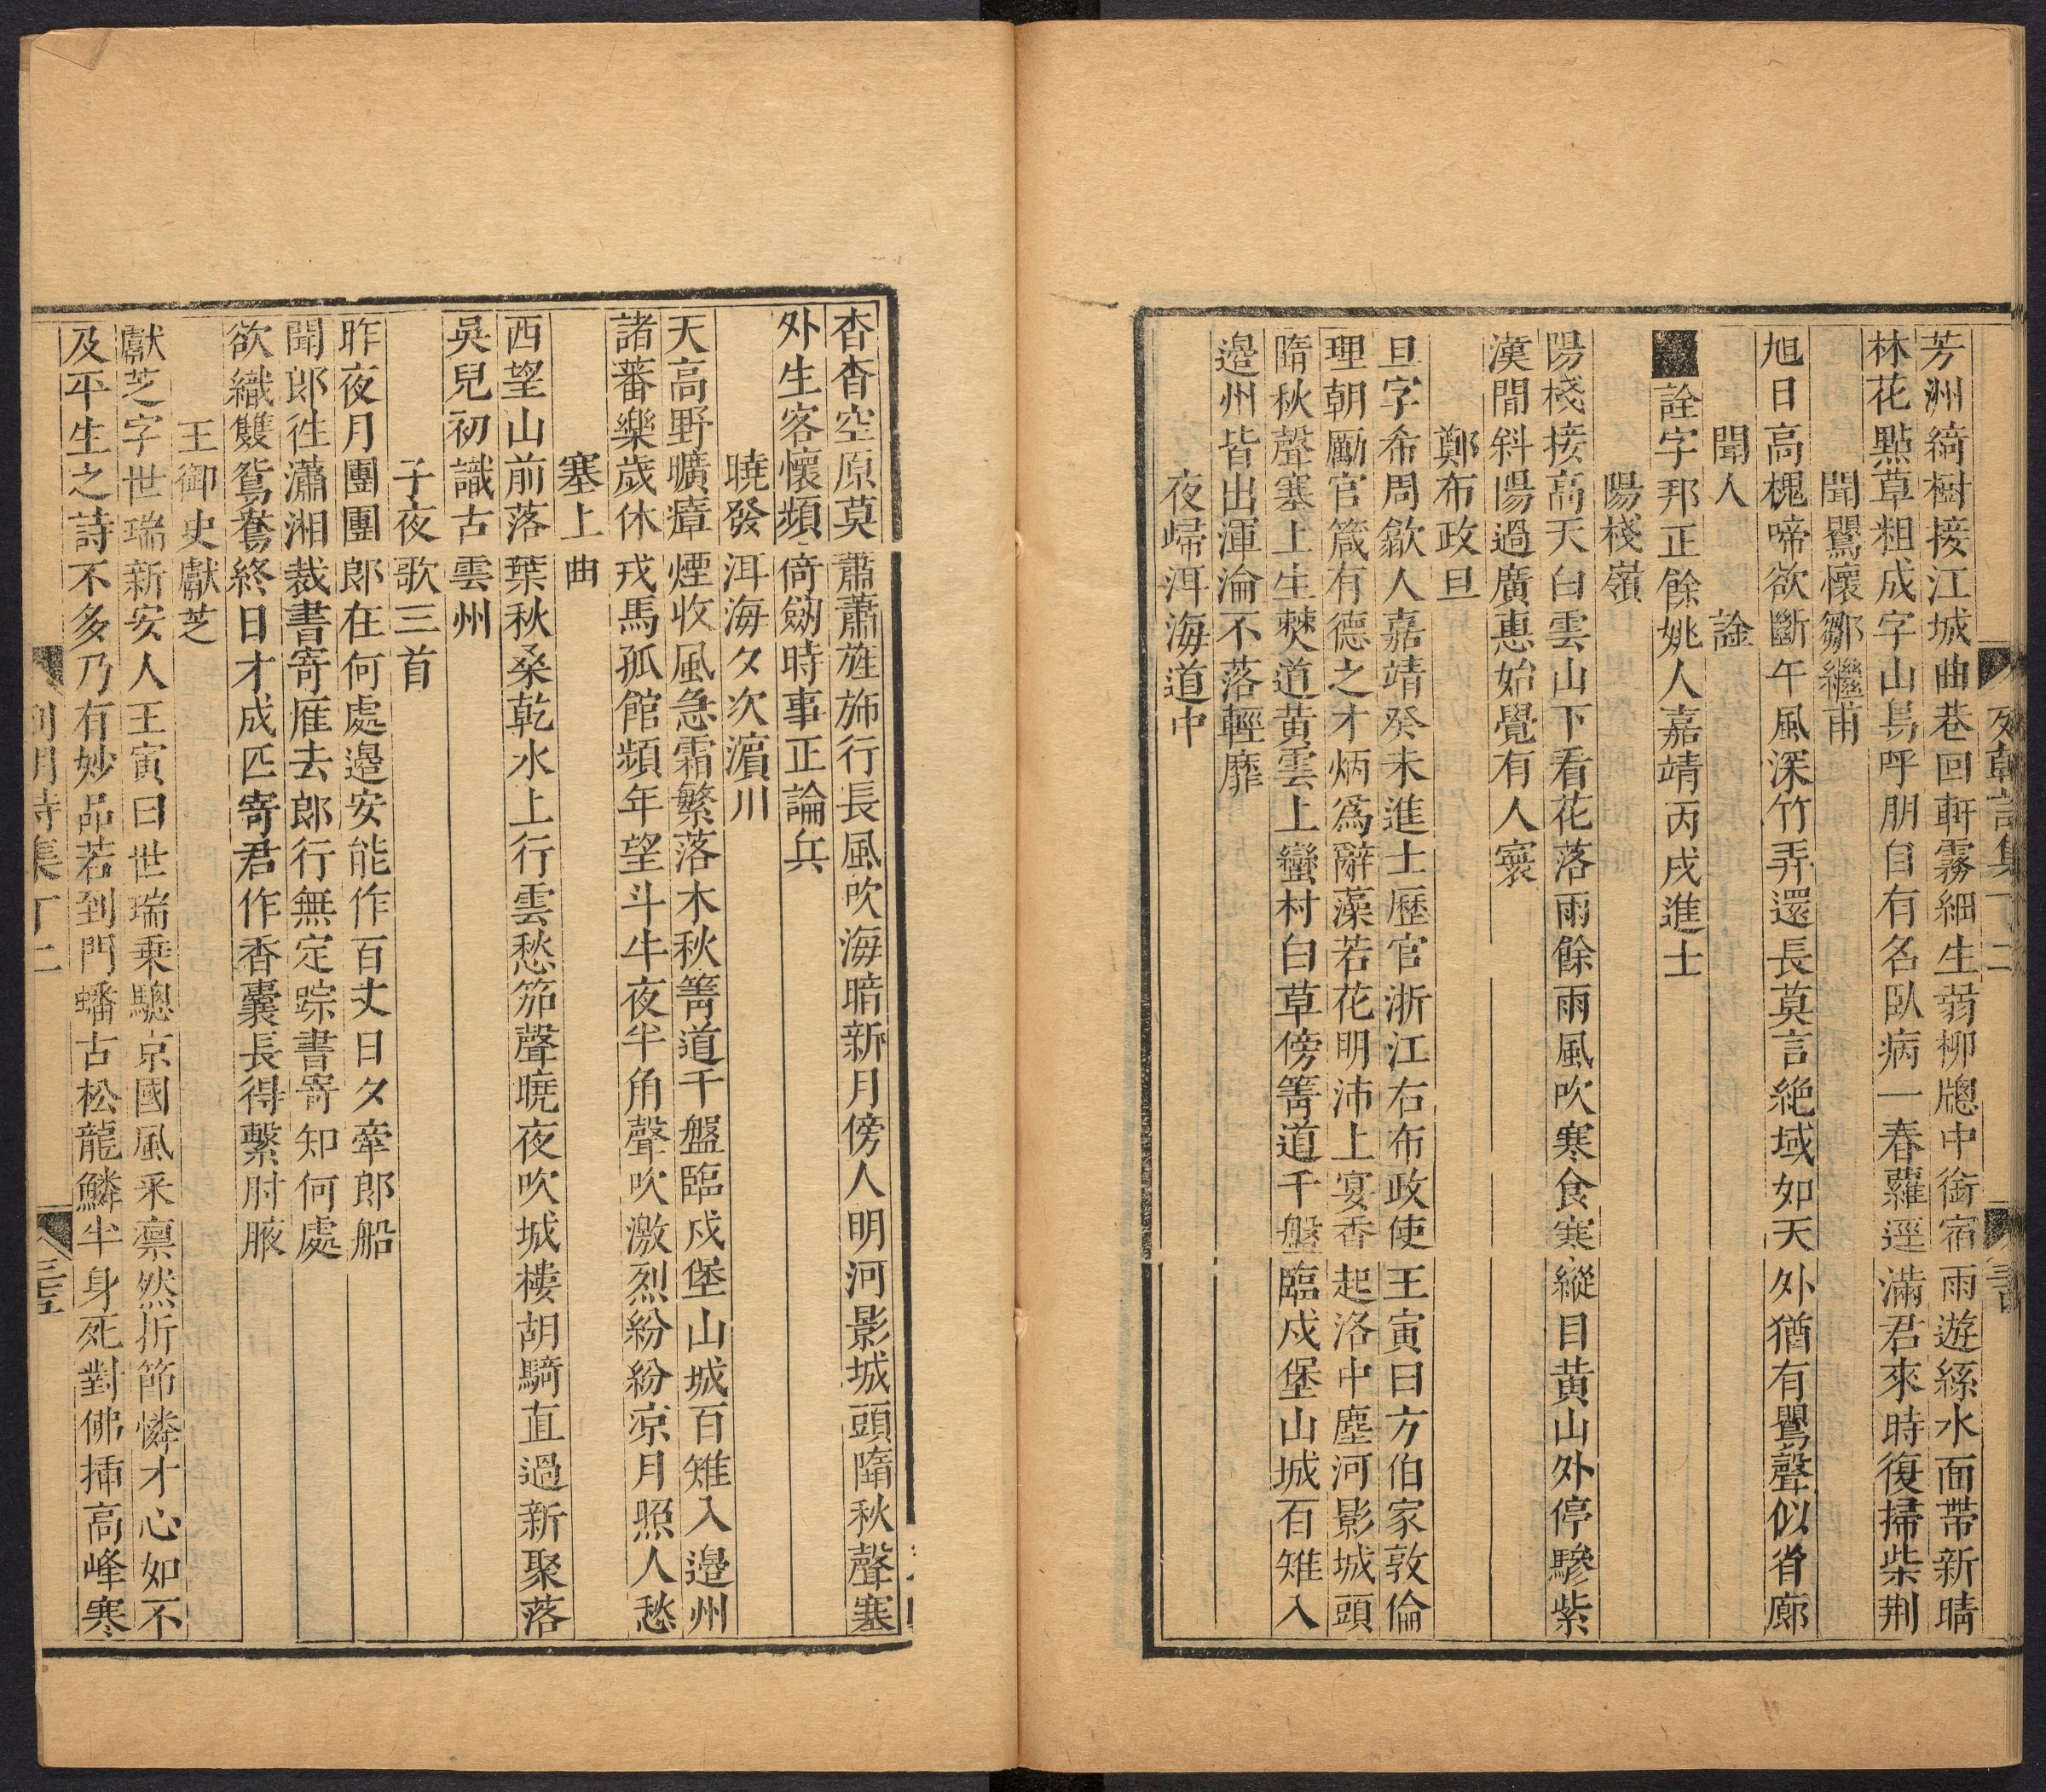 芳洲綺樹接江城曲巷回軒霧細生弱柳牕中銜宿雨遊絲水面帶新晴
林花點草粗成字山鳥呼朋自有名臥病一春蘿逕滿君來時復掃柴荆
聞鸎懷鄒繼甫
旭日高槐啼欲斷午風深竹弄還長莫言絶域如天外猶有鸎聲似省廊
聞人詮
詮字邦正餘姚人嘉靖丙戌進士
陽棧嶺
陽棧接高天白雲山下看花落雨餘雨風吹寒食寒縱目黄山外停驂紫
漢間斜陽過廣惠始覺有人寰
鄭布政旦
旦字希周歙人嘉靖癸未進士歷官浙江右布政使王寅曰方伯家敦倫
理朝勵官箴有德之才炳爲辭藻若花明沛上宴香起洛中塵河影城頭
隋秋聲塞上生僰道黄雲上蠻村白草傍箐道千盤臨戍堡山城百雉入
邉州皆出渾淪不落輕靡
夜歸洱海道中
杳杳空原莫蕭蕭旌斾行長風吹海暗新月傍人明河影城頭隋秋聲塞
外生客懷頻倚劒時事正論兵
曉發洱海夕次濵川
天高野曠瘴煙收風急霜繁落木秋箐道千盤臨戍堡山城百雉入邉州
諸蕃樂歲休戎馬孤館頻年望斗牛夜半角聲吹激烈紛紛凉月照人愁
塞上曲
西望山前落葉秋桑乾水上行雲愁笳聲曉夜吹城樓胡騎直過新聚落
吳兒初識古雲州
子夜歌三首
昨夜月團團郎在何處邉安能作百丈日夕牽郎船
聞郎徃瀟湘裁書寄雁去郎行無定踪書寄知何處
欲織雙鴛鴦終日才成匹寄君作香囊長得繫肘腋
王御史獻芝
獻芝字世瑞新安人王寅曰世瑞乗驄京國風采凛然折節憐才心如不
及平生之詩不多乃有妙品若到門蟠古松龍鱗半身死對佛插高峰寒